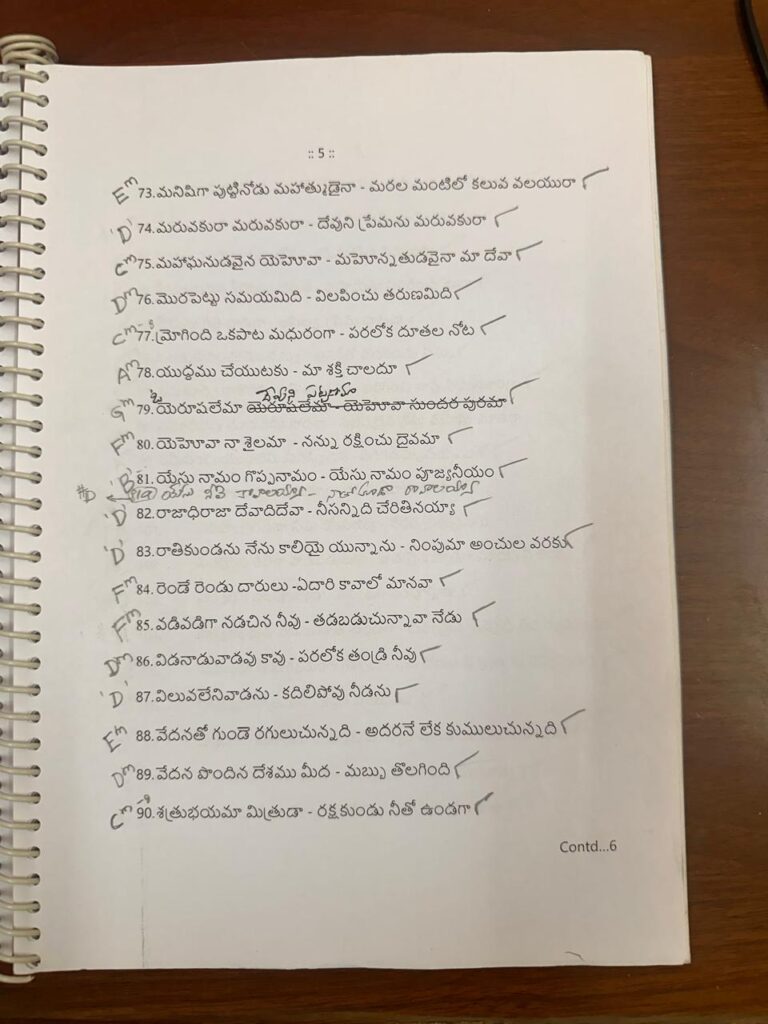 :: 5 ::
Em 73.మనిషిగా పుట్టినోడు మహాత్ముడైనా - మరల మంటిలో కలువ వలయురా
'D' 74.మరువకురా మరువకురా - దేవుని ప్రేమను మరువకురా
Cm 75.మహాఘనుడవైన యెహెూవా - మహెూన్నతుడవైనా మా దేవా
Dm 76.మొరపెట్టు సమయమిది - విలపించు తరుణమిది
Cm 77.మ్రోగింది ఒకపాట మధురంగా - పరలోక దూతల నోట
Am 78.యుద్ధము చేయుటకు - మా శక్తి చాలదూ
ఓ దేవుని పట్టణమా
Gm 79.యెరూషలేమా యెరూషలేమా - యెహెూవా సుందర పురమా
Fm 80.యెహెూవా నా శైలమా - నన్ను రక్షించు దైవమా
'B' 81.యేసు నామం గొప్పనామం - యేసు నామం పూజ్యనీయం
#D యేసు నీవే కావాలయ్యా - నాతో కూడా రావాలయ్యా
'D' 82.రాజాధిరాజా దేవాదిదేవా - నీసన్నిది చేరితినయ్యా
'D' 83.రాతికుండను నేను కాలియై యున్నాను - నింపుమా అంచుల వరకు
Fm 84.రెండే రెండు దారులు -ఏదారి కావాలో మానవా
Fm 85.వడివడిగా నడచిన నీవు - తడబడుచున్నావా నేడు
Dm 86.విడనాడువాడవు కావు - పరలోక తండ్రి నీవు
'D' 87.విలువలేనివాడను - కదిలిపోవు నీడను
Em 88.వేదనతో గుండె రగులుచున్నది - అదరనే లేక కుములుచున్నది
Dm 89.వేదన పొందిన దేశము మీద - మబ్బు తొలగింది
Cm 90.శత్రుభయమా మిత్రుడా - రక్షకుండు నీతో ఉండగా
Contd...6